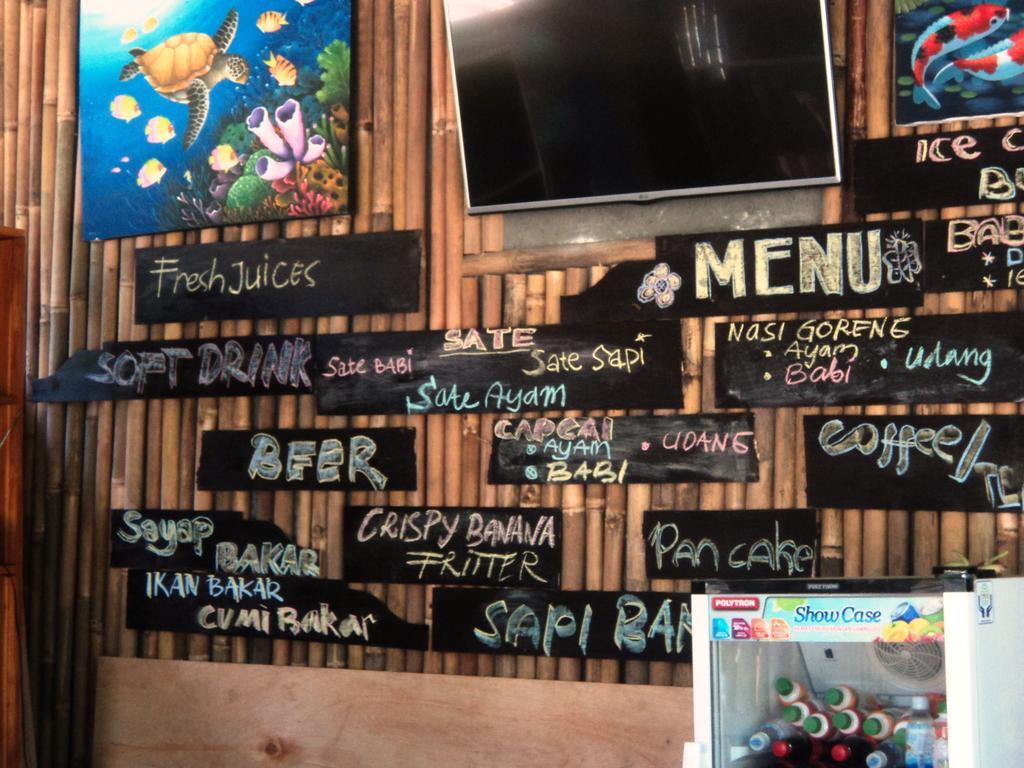 ICE
MENU
BAB
Fresh JUICES
NASI GORENG
• Ayam
• Babi
• Udang
SATE
Sate BABI
Sate Sapi
Sate Ayam
SOFT DRINK
CAPCAI
• AYAM
• BABI
• UDANG
Coffee/
BEER
Sayap
BAKAR
CRISPY BANANA
FRITTER
Pan cake
IKAN BAKAR
CUMI BaKar
SAPI
POLYTRON
Show Case